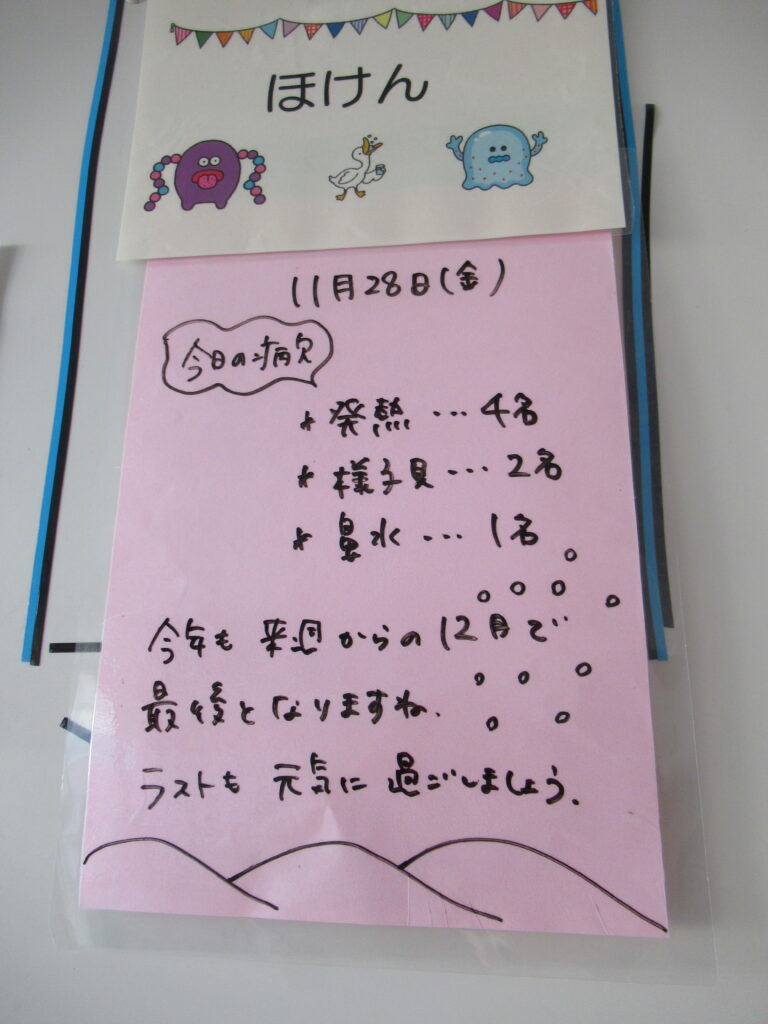 ほけん
11月28日(金)
今日の病欠
* 発熱 … 4名
* 様子見 … 2名
* 鼻水 … 1名
今年も来週からの12月で
最後となりますね.
ラストも 元気に 過ごしましょう.